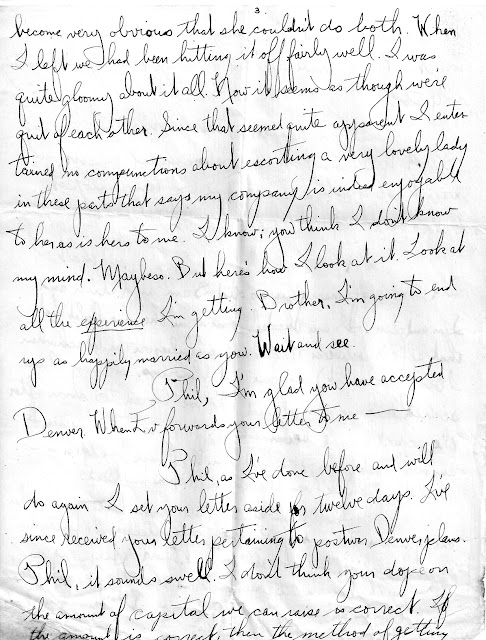 3.
become very obvious that she couldn't do both. When
I left we had been hitting it off fairly well. I was
quite gloomy about it all. Now it seems as though we're
quit of each other. Since that seemed quite apparent I enter-
tained no compunctions about escorting a very lovely lady
in these parts that says my company is indeed enjoyable
to her as is hers to me. I know; you think I don't know
my mind. Maybe so. But here's how I look at it. Look at
all the experience I'm getting. Brother, I'm going to end
up as happily married as you. Wait and see.
Phil, I'm glad you have accepted
Denver. When Ev forwards your letter to me —
Phil, as I've done before and will
do again I set your letter aside for twelve days. I've
since received your letter pertaining to postwar Denver plans.
Phil, it sounds swell. I don't think your dope on
the amount of capital we can raise is correct. If
the amount is correct, then the method of getting